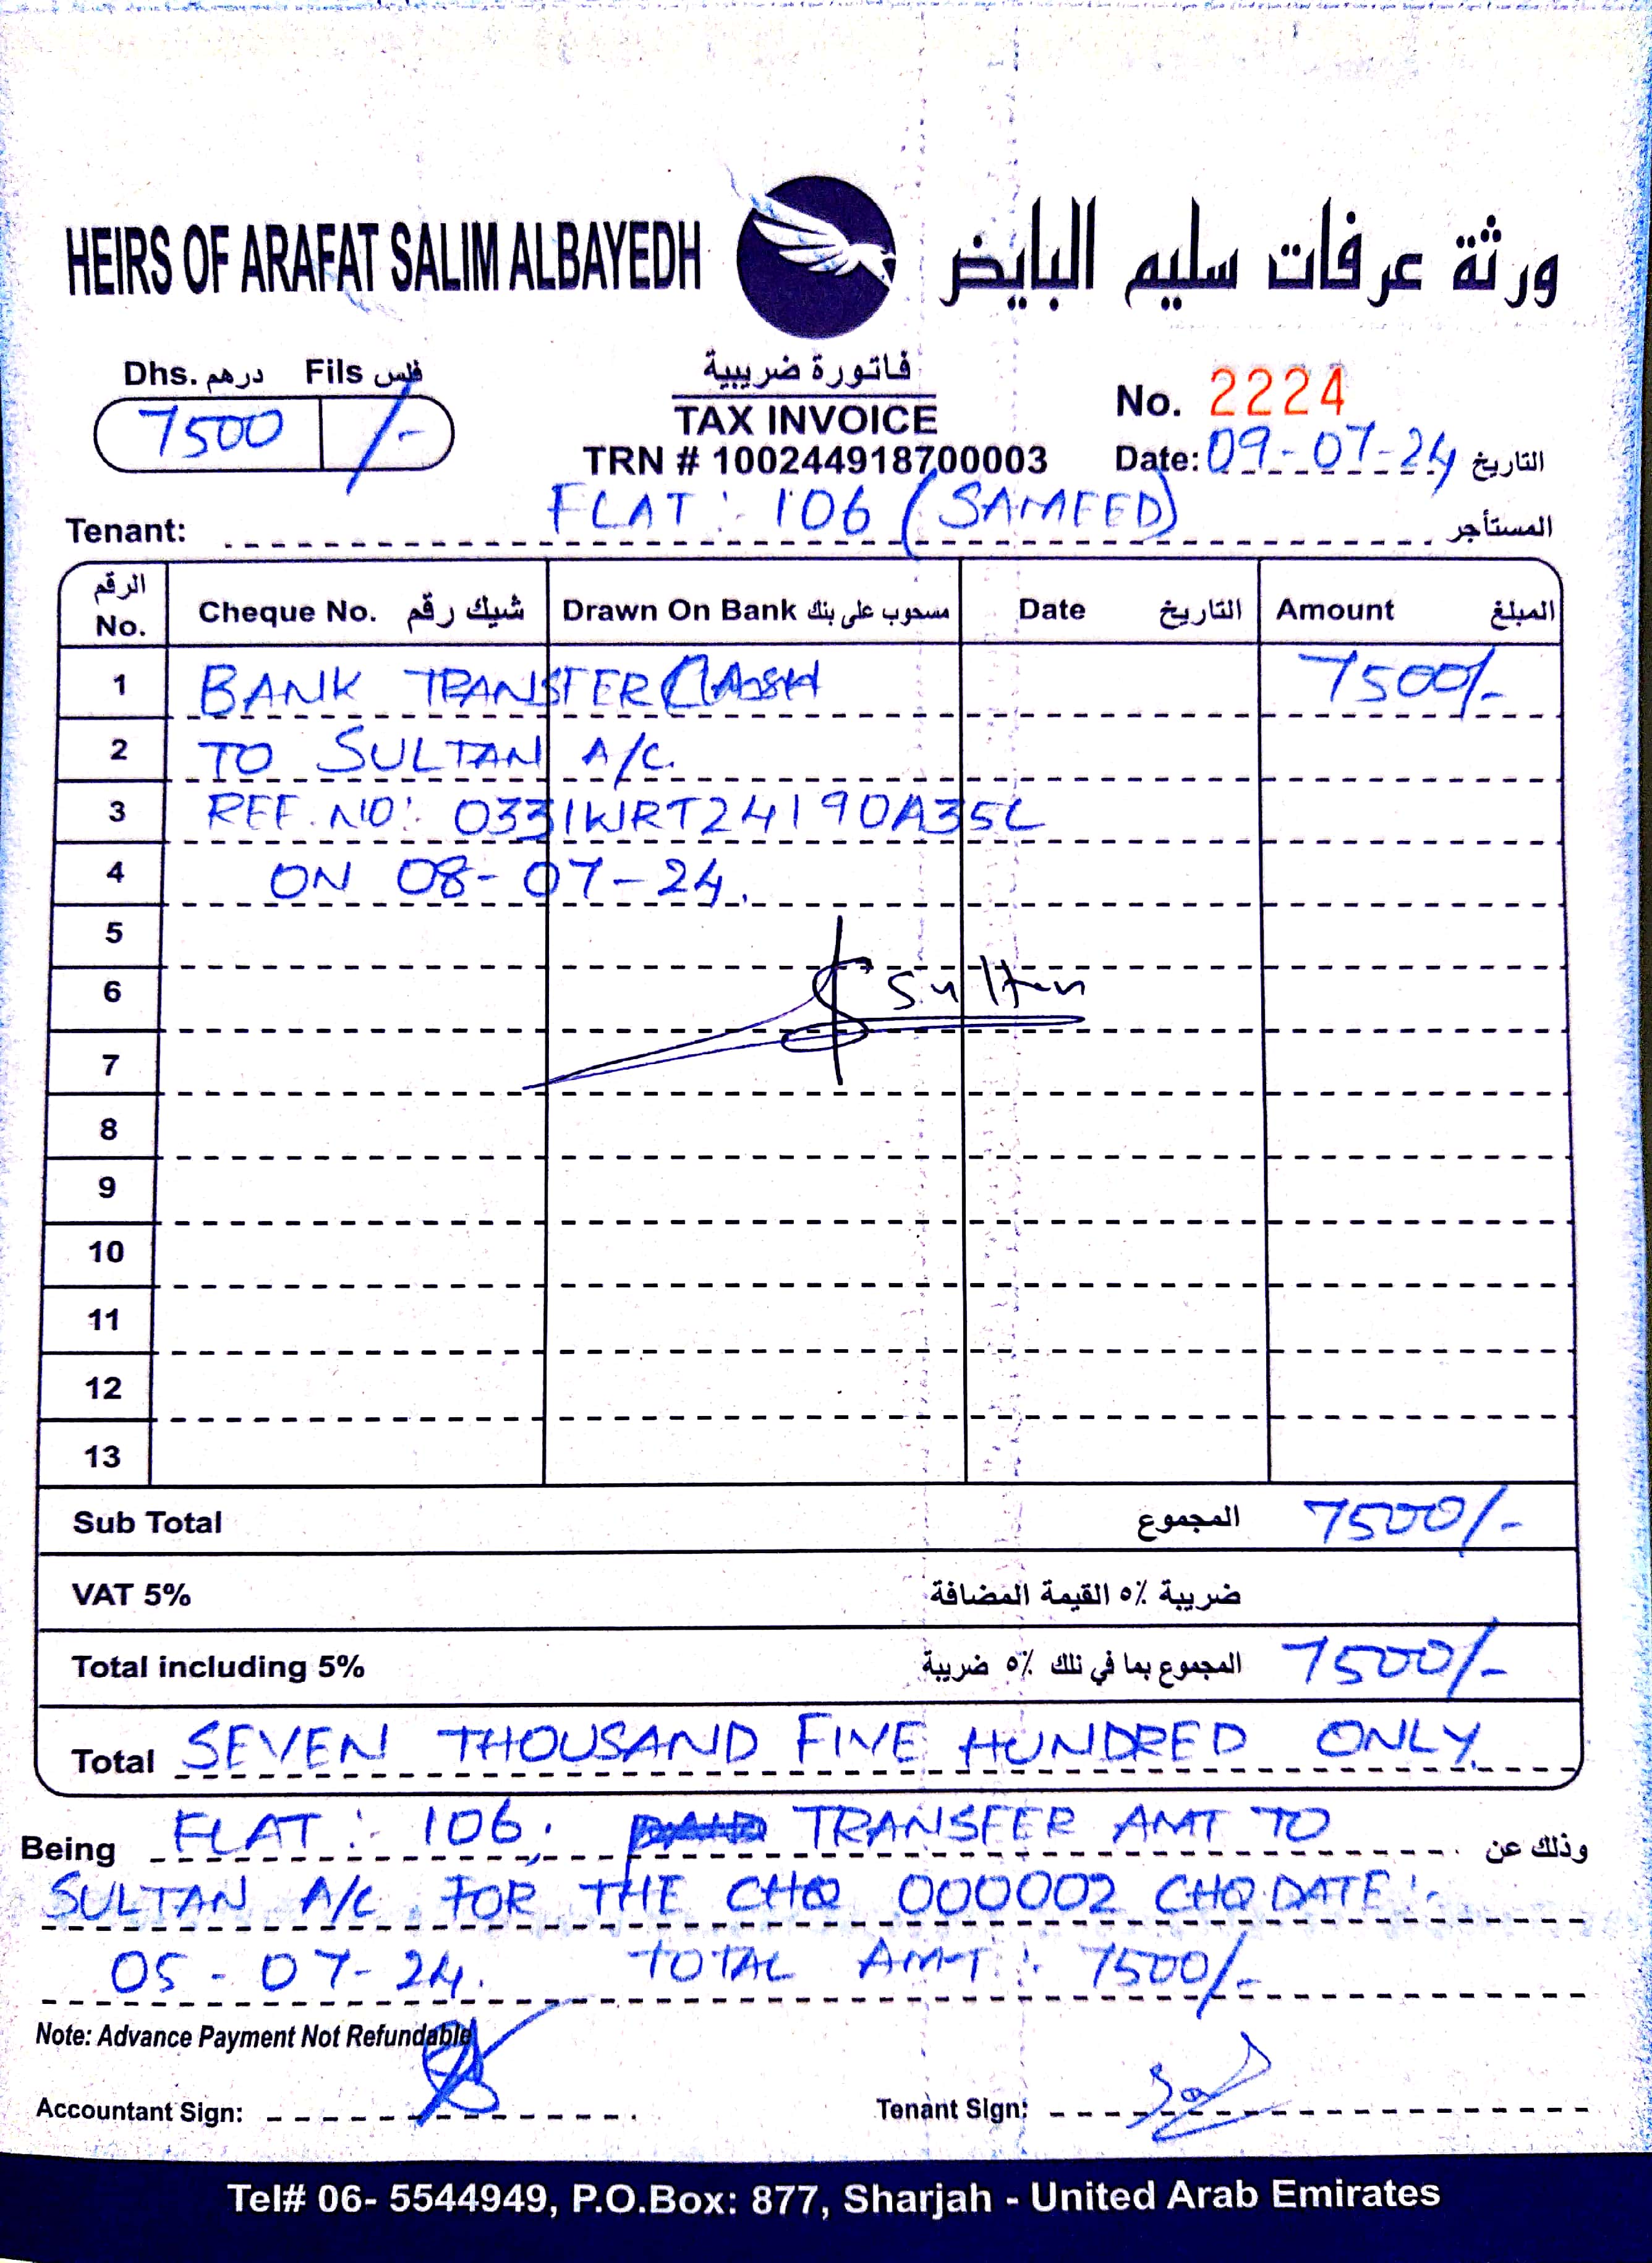 HEIRS OF ARAFAT SALIM ALBAYEDH ورثة عرفات سليم البايض
Dhs. درهم Fils فلس
7500 /-
فاتورة ضريبية
TAX INVOICE
TRN # 100244918700003
No. 2224
Date: 09-07-24 التاريخ
Tenant: FLAT: 106 (SAMEED) المستأجر
الرقم No. Cheque No. شيك رقم Drawn On Bank مسحوب على بنك Date التاريخ Amount المبلغ
1 BANK TRANSFER 7500/-
2 TO SULTAN A/C.
3 REF. NO: 0331WRT24190A35L
4 ON 08-07-24.
5
6 Sultan
7
8
9
10
11
12
13
Sub Total المجموع 7500/-
VAT 5% ضريبة ٥٪ القيمة المضافة
Total including 5% المجموع بما في ذلك ٥٪ ضريبة 7500/-
Total SEVEN THOUSAND FIVE HUNDRED ONLY.
Being FLAT: 106. TRANSFER AMT TO وذلك عن
SULTAN A/C FOR THE CHQ 000002 CHQ DATE:-
05-07-24. TOTAL AMT: 7500/-
Note: Advance Payment Not Refundable
Accountant Sign: Tenant Sign:
Tel# 06- 5544949, P.O.Box: 877, Sharjah - United Arab Emirates